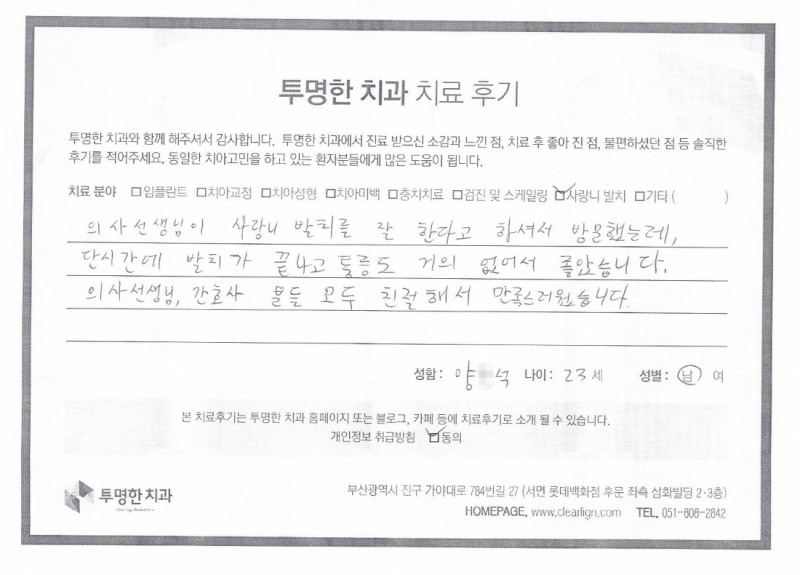 투명한 치과 치료 후기
투명한 치과와 함께 해주셔서 감사합니다. 투명한 치과에서 진료 받으신 소감과 느낀 점, 치료 후 좋아 진 점, 불편하셨던 점 등 솔직한
후기를 적어주세요. 동일한 치아고민을 하고 있는 환자분들에게 많은 도움이 됩니다.
치료 분야 □임플란트 □치아교정 □치아성형 □치아미백 □충치치료 □검진 및 스케일링 ☑사랑니 발치 □기타 ( )
의사선생님이 사랑니 발치를 잘 한다고 하셔서 방문했는데,
단시간에 발치가 끝나고 통증도 거의 없어서 좋았습니다.
의사선생님, 간호사 분들 모두 친절해서 만족스러웠습니다.
성함: 양 석 나이: 23 세 성별: 남 여
본 치료후기는 투명한 치과 홈페이지 또는 블로그, 카페 등에 치료후기로 소개 될 수 있습니다.
개인정보 취급방침 ☑동의
투명한치과
부산광역시 진구 가야대로 784번길 27 (서면 롯데백화점 후문 좌측 삼화빌딩 2·3층)
HOMEPAGE. www.clearlign.com TEL. 051-808-2842